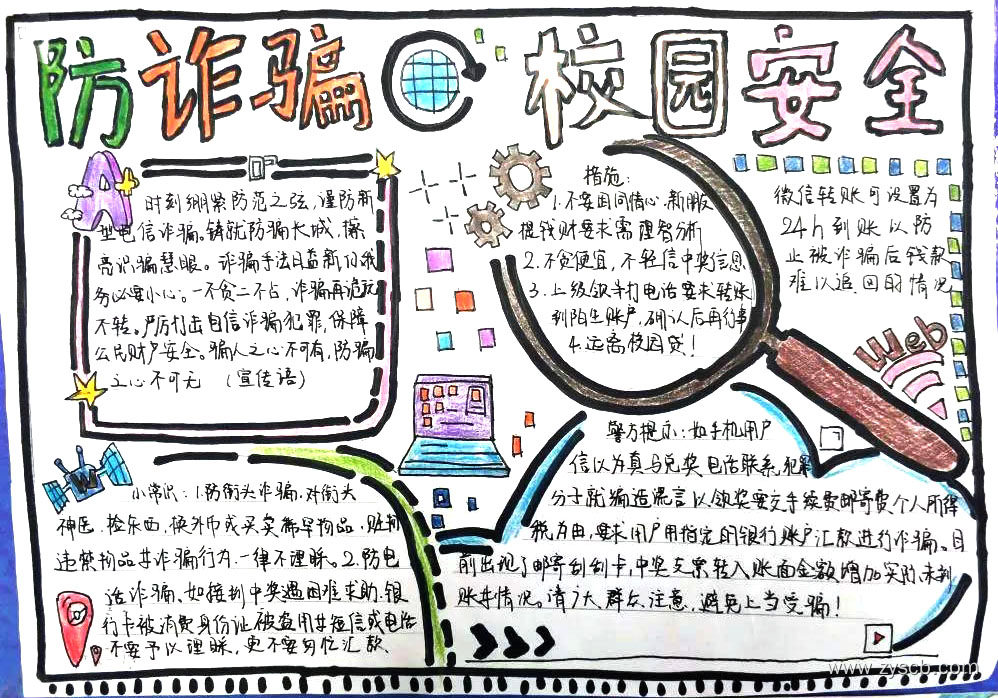 防诈骗 校园安全
时刻绷紧防范之弦,谨防新
型电信诈骗。铸就防骗长城,擦
亮识骗慧眼。诈骗手法日益新
务必要小心。一不贪二不占,诈骗再诡
不转。严厉打击电信诈骗犯罪,保障
公民财产安全。骗人之心不可有,防骗
之心不可无 (宣传语)
措施:
1.不要因同情心,新
提钱财要求需理智分析
2.不贪便宜,不轻信中奖信息
3.上级领导打电话要求转账
到陌生账户,确认后再行事
4.远离校园贷!
微信转账可设置为
24h到账以防
止被诈骗后钱款
难以追回的情况
Web
小常识:1.防街头诈骗.对街头
神医、捡东西,换外币或买卖稀罕物品,贩制
违禁物品等诈骗行为一律不理睬。2.防电
话诈骗、如接到中奖遇困难求助.银
行卡被消费身份证被盗用等短信或电话
不要予以理睬,更不要匆忙汇款、
W
警方提示:如手机用户
信以为真与兑奖电话联系,犯罪
分子就编造谎言以领奖要交手续费邮寄费个人所得
税为由,要求用户用指定的银行账户汇款进行诈骗。目
前出现了邮寄刮刮卡,中奖支票转入账面金额增加实际未到
账等情况。请广大群众注意,避免上当受骗!
www.zyscb.com